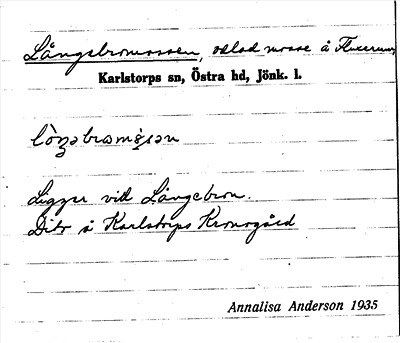 Långebromossen, odlad mosse å Fluxerum,
Karlstorps sn, Östra hd, Jönk. l.
Ligger vid Långebron.
Dito å Karlstorps Kronogård
Annalisa Anderson 1935